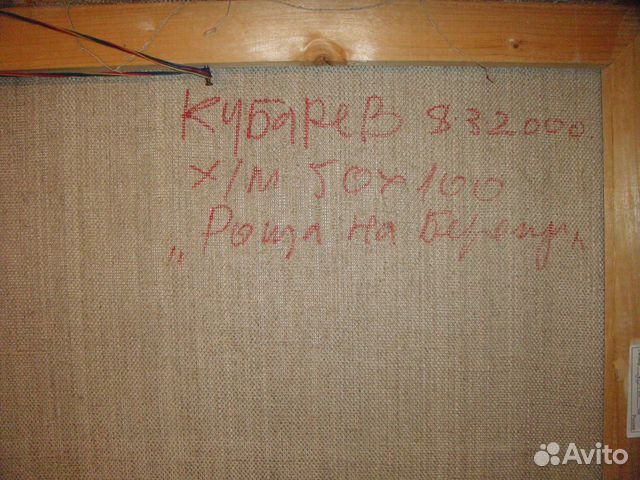 Кубарев 8.32000.
х/м 50х100
„Роща на Берегу"
Avito